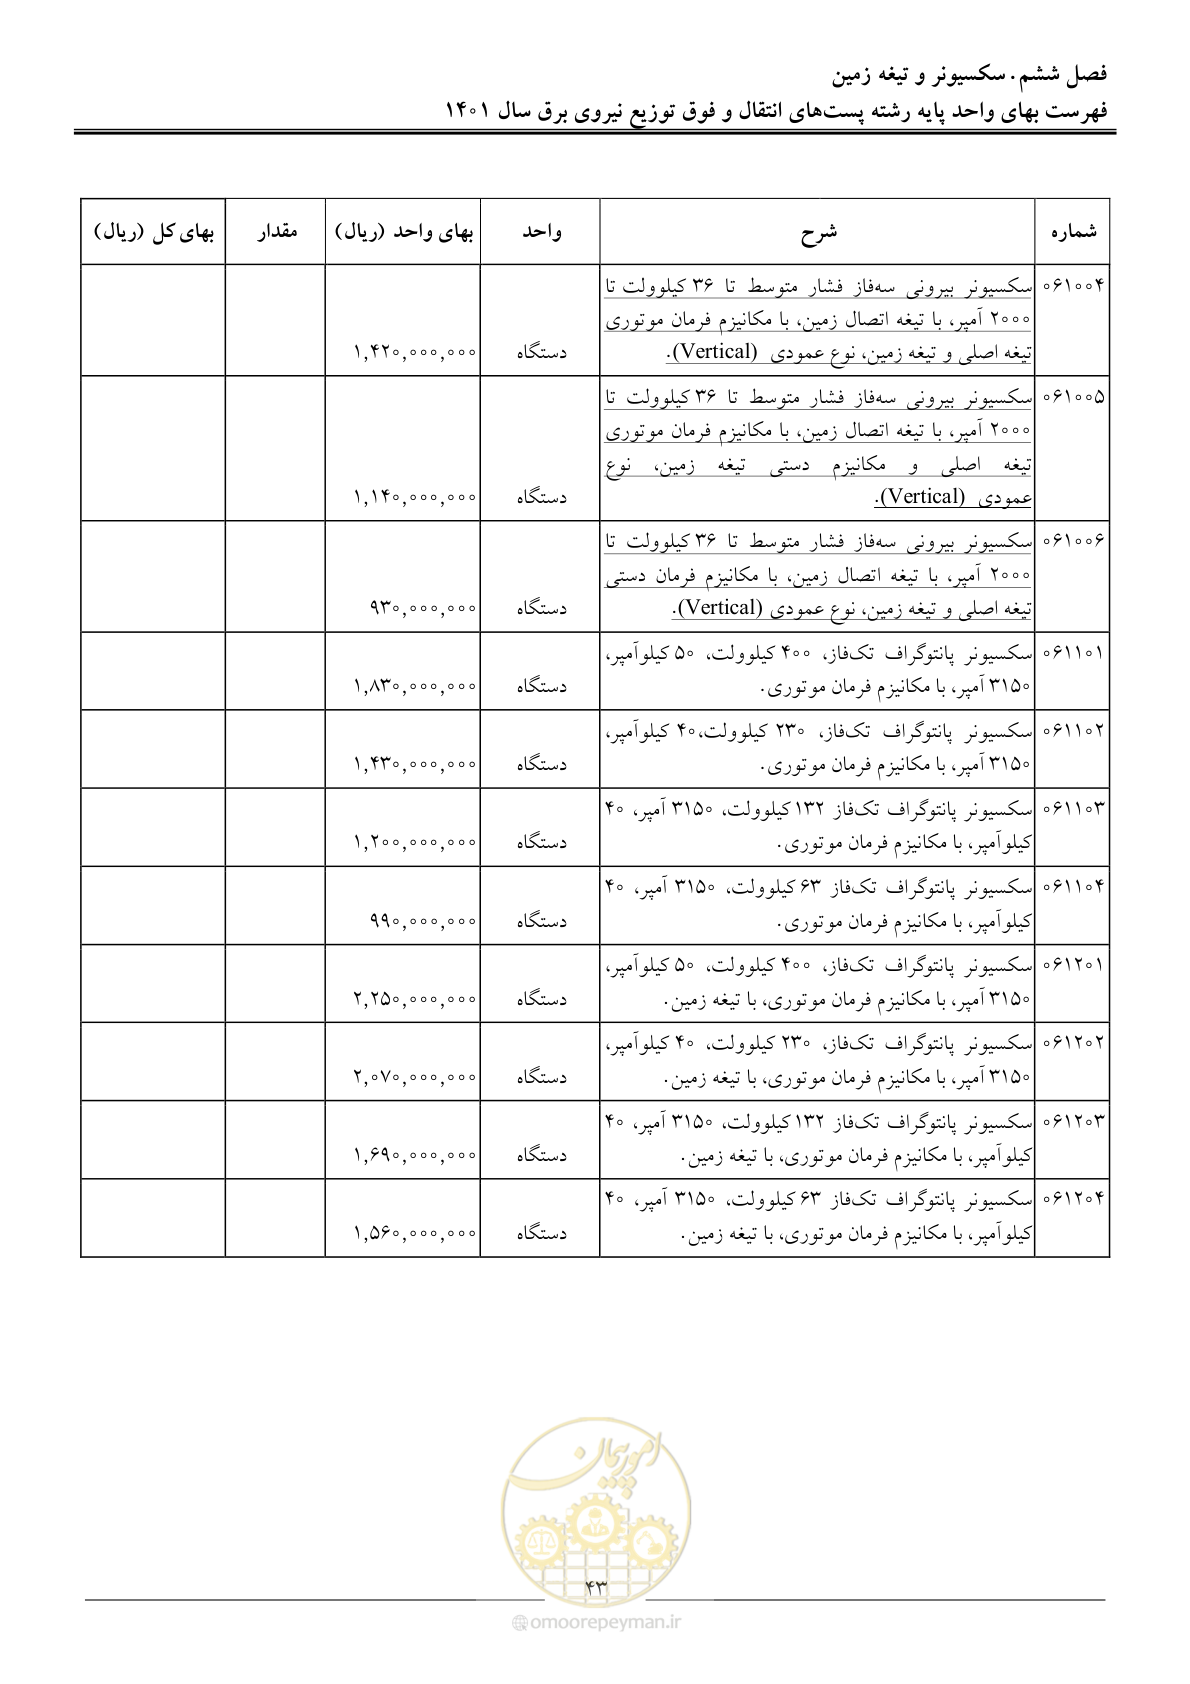 فصل ششم. سکسیونر و تیغه زمین
فهرست بهای واحد پایه رشته پست‌های انتقال و فوق توزیع نیروی برق سال ۱۴۰۱
شماره شرح واحد بهای واحد (ریال) مقدار بهای کل (ریال)
۰۶۱۰۰۴ سکسیونر بیرونی سه‌فاز فشار متوسط تا ۳۶ کیلوولت تا
۲۰۰۰ آمپر، با تیغه اتصال زمین، با مکانیزم فرمان موتوری
تیغه اصلی و تیغه زمین، نوع عمودی (Vertical). دستگاه ۱,۴۲۰,۰۰۰,۰۰۰
۰۶۱۰۰۵ سکسیونر بیرونی سه‌فاز فشار متوسط تا ۳۶ کیلوولت تا
۲۰۰۰ آمپر، با تیغه اتصال زمین، با مکانیزم فرمان موتوری
تیغه اصلی و مکانیزم دستی تیغه زمین، نوع
عمودی (Vertical). دستگاه ۱,۱۴۰,۰۰۰,۰۰۰
۰۶۱۰۰۶ سکسیونر بیرونی سه‌فاز فشار متوسط تا ۳۶ کیلوولت تا
۲۰۰۰ آمپر، با تیغه اتصال زمین، با مکانیزم فرمان دستی
تیغه اصلی و تیغه زمین، نوع عمودی (Vertical). دستگاه ۹۳۰,۰۰۰,۰۰۰
۰۶۱۱۰۱ سکسیونر پانتوگراف تک‌فاز، ۴۰۰ کیلوولت، ۵۰ کیلوآمپر،
۳۱۵۰ آمپر، با مکانیزم فرمان موتوری. دستگاه ۱,۸۳۰,۰۰۰,۰۰۰
۰۶۱۱۰۲ سکسیونر پانتوگراف تک‌فاز، ۲۳۰ کیلوولت،۴۰ کیلوآمپر،
۳۱۵۰ آمپر، با مکانیزم فرمان موتوری. دستگاه ۱,۴۳۰,۰۰۰,۰۰۰
۰۶۱۱۰۳ سکسیونر پانتوگراف تک‌فاز ۱۳۲ کیلوولت، ۳۱۵۰ آمپر، ۴۰
کیلوآمپر، با مکانیزم فرمان موتوری. دستگاه ۱,۲۰۰,۰۰۰,۰۰۰
۰۶۱۱۰۴ سکسیونر پانتوگراف تک‌فاز ۶۳ کیلوولت، ۳۱۵۰ آمپر، ۴۰
کیلوآمپر، با مکانیزم فرمان موتوری. دستگاه ۹۹۰,۰۰۰,۰۰۰
۰۶۱۲۰۱ سکسیونر پانتوگراف تک‌فاز، ۴۰۰ کیلوولت، ۵۰ کیلوآمپر،
۳۱۵۰ آمپر، با مکانیزم فرمان موتوری، با تیغه زمین. دستگاه ۲,۲۵۰,۰۰۰,۰۰۰
۰۶۱۲۰۲ سکسیونر پانتوگراف تک‌فاز، ۲۳۰ کیلوولت، ۴۰ کیلوآمپر،
۳۱۵۰ آمپر، با مکانیزم فرمان موتوری، با تیغه زمین. دستگاه ۲,۰۷۰,۰۰۰,۰۰۰
۰۶۱۲۰۳ سکسیونر پانتوگراف تک‌فاز ۱۳۲ کیلوولت، ۳۱۵۰ آمپر، ۴۰
کیلوآمپر، با مکانیزم فرمان موتوری، با تیغه زمین. دستگاه ۱,۶۹۰,۰۰۰,۰۰۰
۰۶۱۲۰۴ سکسیونر پانتوگراف تک‌فاز ۶۳ کیلوولت، ۳۱۵۰ آمپر، ۴۰
کیلوآمپر، با مکانیزم فرمان موتوری، با تیغه زمین. دستگاه ۱,۵۶۰,۰۰۰,۰۰۰
امور پیمان
۴۳
omoorepeyman.ir